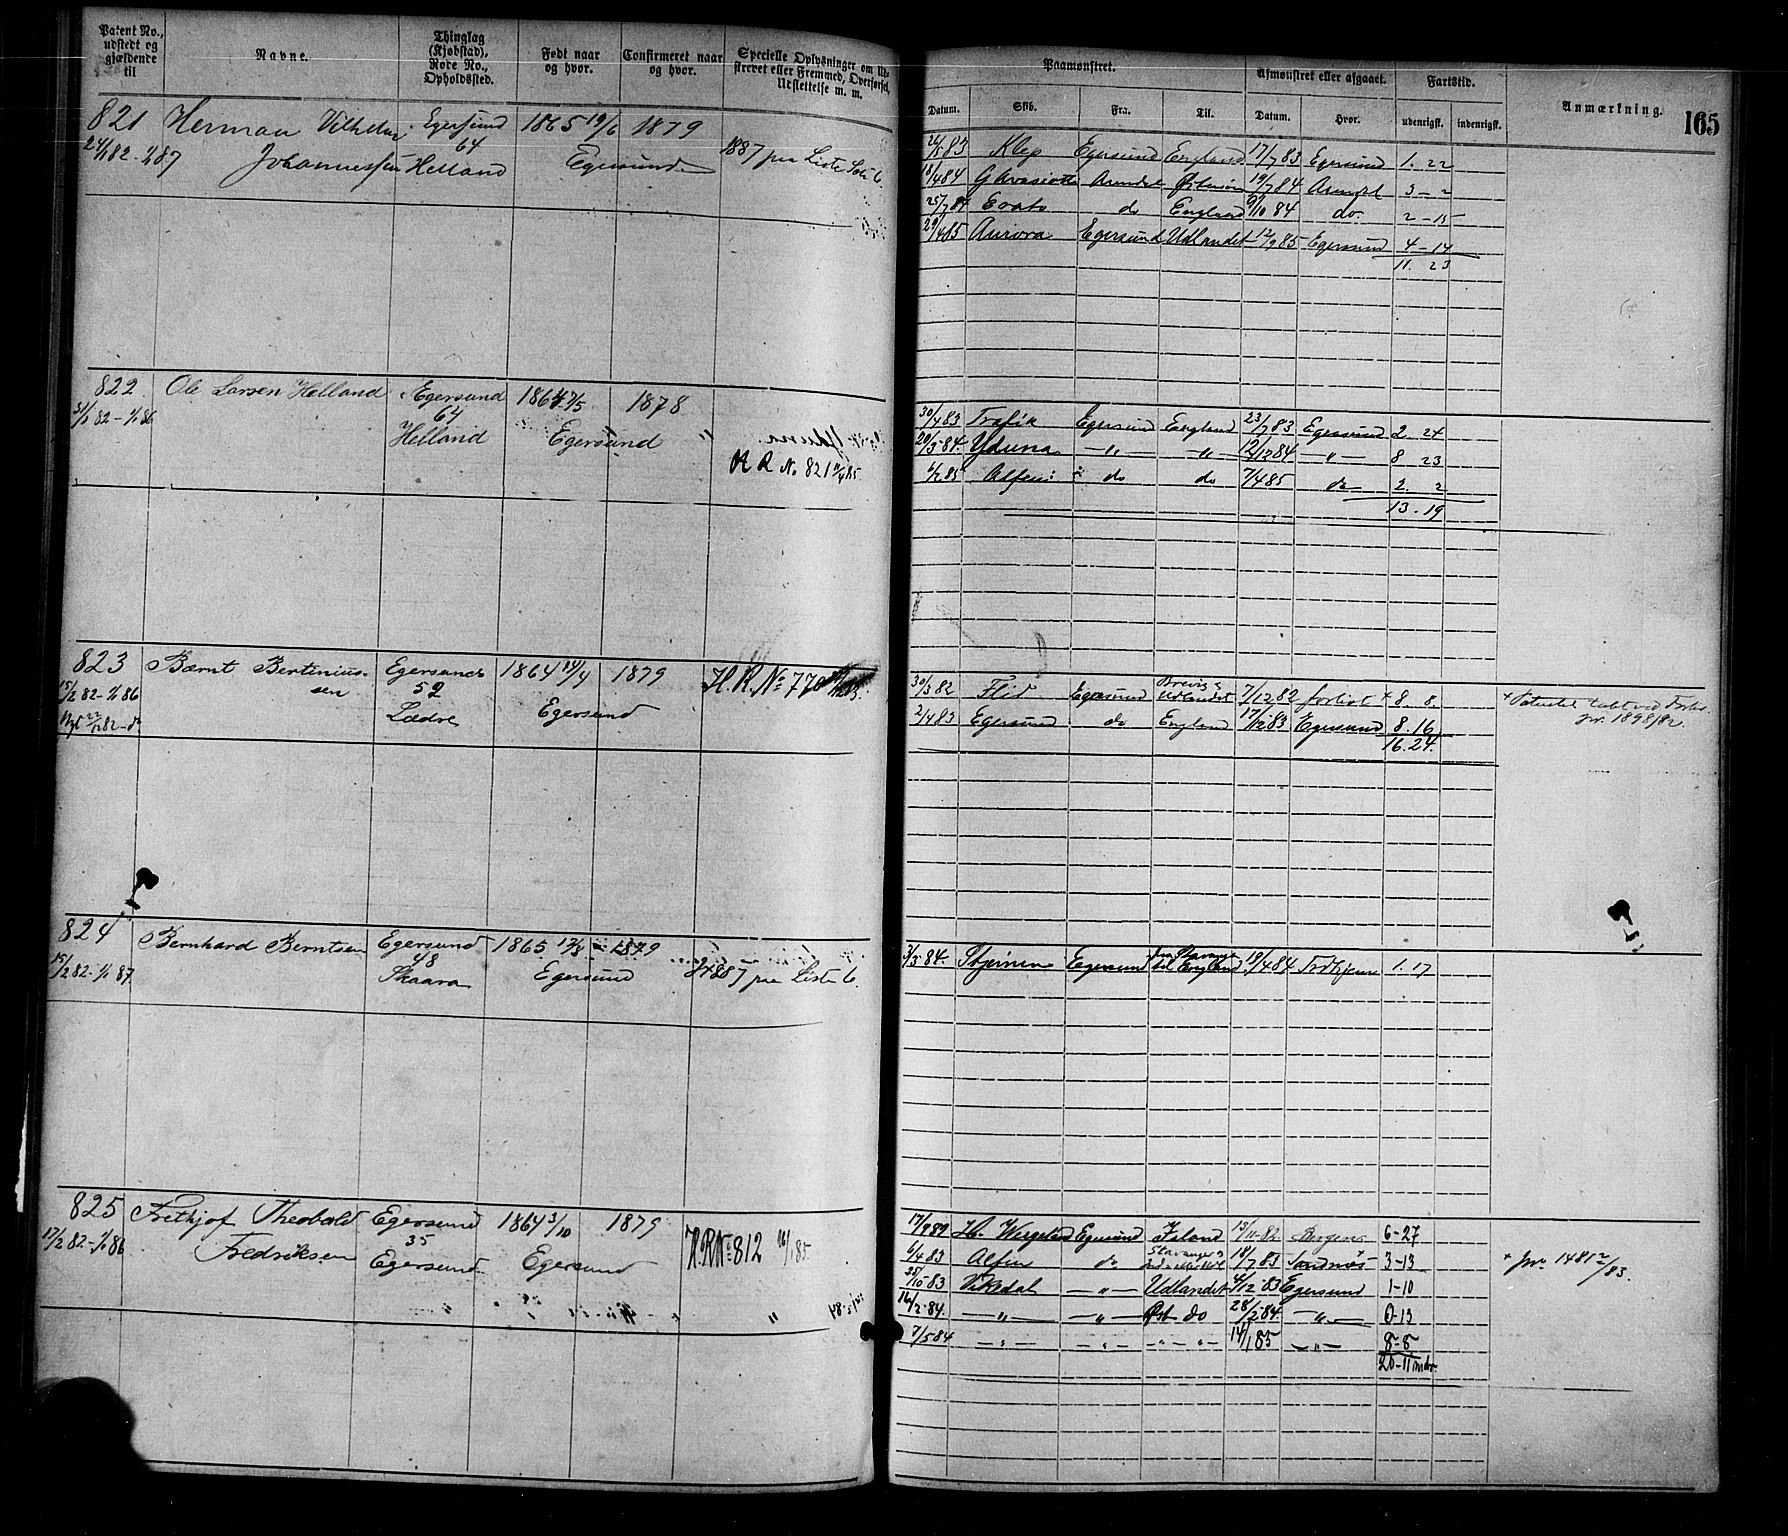 Patent No., udstedt og gjældende til
Navne.
Thinglag (Kjøbstad), Rode No., Opholdssted.
Født naar og hvor.
Confirmeret naar og hvor.
Specielle Oplysninger om Udskrevet eller Fremmed, Overførsel, Udslettelse m. m.
Paamønstret.
Afmønstret eller afgaaet.
Fartstid.
Anmærkning.
165
Datum. Skib. Fra. Til. Datum. Hvor. udenrigsk. indenrigsk.
821 Herman Vilhelm Egersund 1865 19/6 1879
82-1/1 87 Johannessen 64 Helland Egersund 1887 paa Liste Litr. C.
83 Klep Egersund England 17/7 83 Egersund 1. 22
18/4 84 Arendal 19/7 84 Arendal 3 - 2
25/7 84 do England 84 do. 2 - 15
29/4 85 Aurora Egersund Udlandet 12/9 85 Egersund 4 - 14
11. 23
822 Ole Larsen Helland Egersund 1864 1878
82-1/1 86 64
Helland Egersund "
H R No. 821 85
30/4 83 Trafik Egersund England 23/7 83 Egersund 2. 24
20/3 84. Yduna -"- -"- 12/12 84 -"- 8 23
85 Alfen do do 7/4 85 do 2. 2
13. 19
823 Bernt Bertinius- Egersund 1864 14/4 1879 H. R. No 770
sen 52
15/2 82-1/1 86 Lædre Egersund
Nyt 82-do
30/3 82 Flid Egersund Brevig & Udlandet 7/12 82 forliist + 8. 8.
+ Patentet tabt ved Forlis. jvr. 1898/82.
2/4 83 Egersund do England 17/12 83 Egersund 8. 16
16. 24.
824 Bernhard Berntsen Egersund 1865 1879
15/2 82-1/1 87 48
Skaara Egersund 1887 paa Liste C.
3/3 84. Stjernen Egersund fra Stavanger til England 19/4 84 1. 17
825 Frithjof Theobald Egersund 1864 3/10 1879
17/2 82-1/1 86 Fredriksen 35
Egersund Egersund H.R No 812 85.
H. Wergeland Egersund Island 82 Bergen 6-27
83 Alfen do 18/7 83 Sandnæs + 3-13
+ jvr. 1481 /83.
83 Vikedal -"- Udlandet 4/12 83 Egersund 1-10
16/2 84. -"- -"- do 28/2 84. -"- 0-13
7/5 84 -"- -"- -"- 14/1 85 -"- 8-8
20-11 mdr.